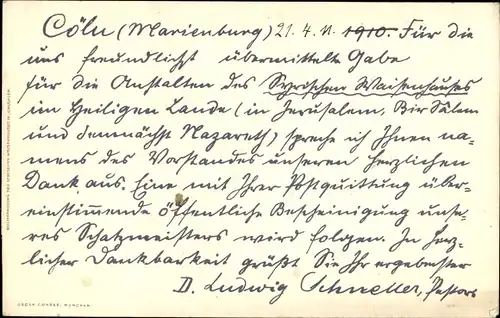 Cöln (Marienburg) 21. 4. 11. 1910. Für die
uns freundlichst übermittelte Gabe
für die Anstalten des Syrischen Waisenhauses
im Heiligen Lande (in Jerusalem, Bir Salem
und demnächst Nazareth) spreche ich Ihnen na-
mens des Vorstandes unseren herzlichen
Dank aus. Eine mit Ihrer Postquittung über-
einstimmende öffentliche Bescheinigung unse-
res Schatzmeisters wird folgen. In herz-
licher Dankbarkeit grüßt Sie Ihr ergebenster
D. Ludwig Schneller, Pastor
OSCAR CONSÉE, MÜNCHEN